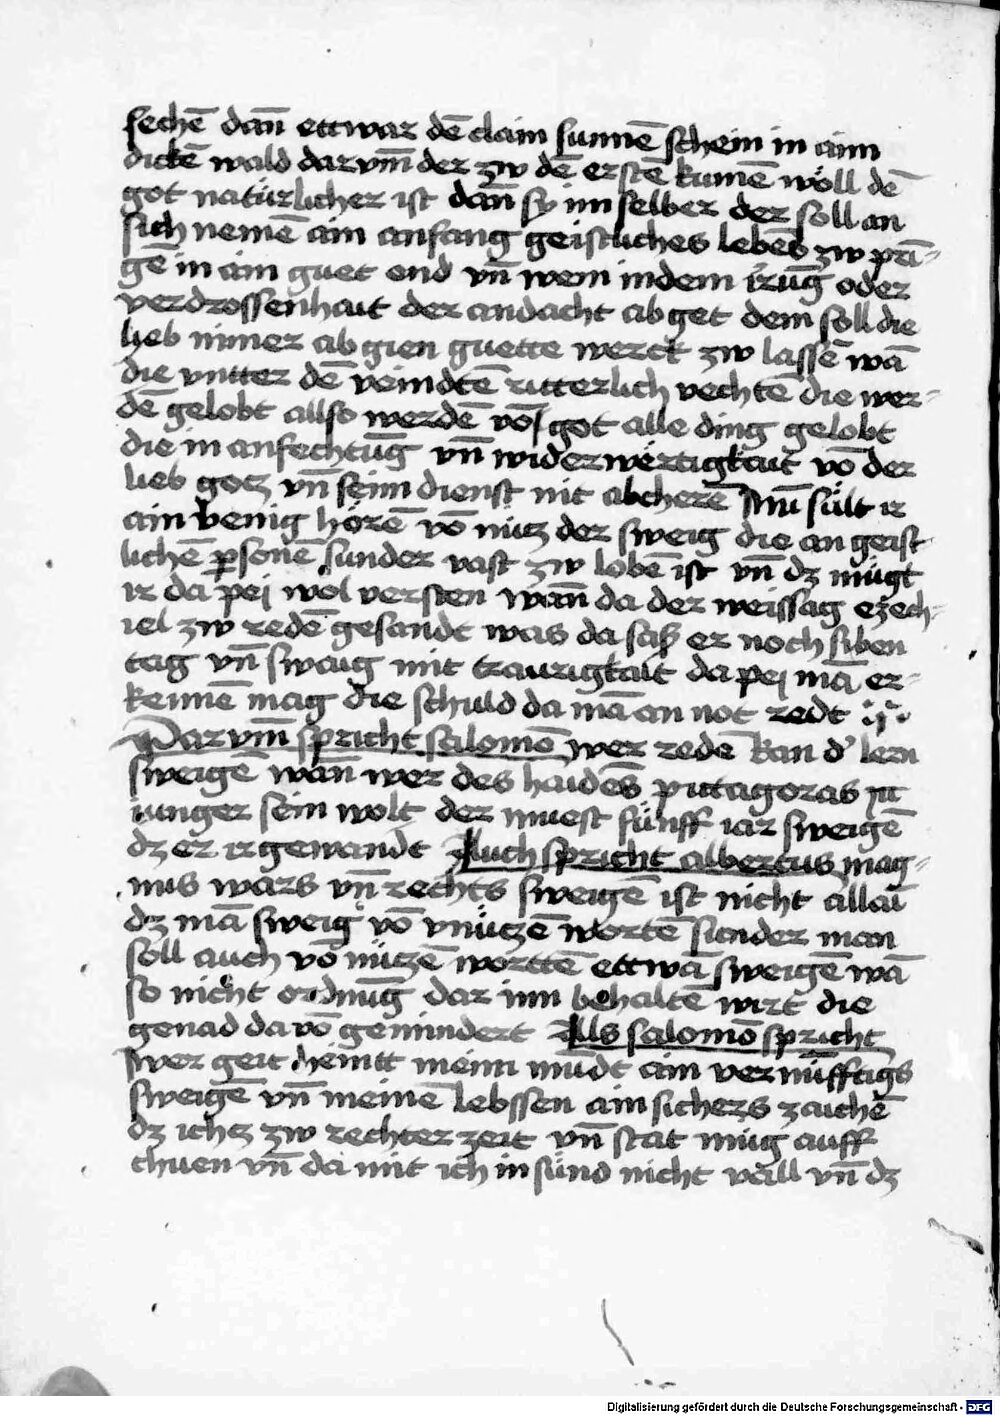 sechē dan̄ ettwaz dē clain sunnē schein in aim
dickē wald dar vm̄ der zw dē erstē kumē wöll dē
got natürlicher ist dan̄ sy im selber der soll an
sich nemē ain anfang geistliches lebēs zw prī-
gē in ain guet end vn̄ wem in dem irrūg oder
verdrossenhait der andacht ab get dem soll die
lieb nimer ab gien guette werck zw lassē wā
die vntter dē veindtē ritterlich vechtē die wer-
dē gelobt allso werdē vō got alle ding gelobt
die in anfechtūg vn̄ widerwërtigkait vō der
lieb gotz vn̄ seim dienst nit abcherē Nu sült ir
ain wenig hörē vō nütz der sweig die an geist
lichē psonē sunder vast zw lobē ist vn̄ dz mügt
ir da pej wol versten wan̄ da der weissag ezech-
iel zw redē gesandt was da saß er noch siben
tag vn̄ swaig mit traurigkait da pej mā er-
kennē mag die schuld da mā an not redt
Dar vm̄ spricht salomō wer redē kan d' lern
sweigē wan̄ wer des haidēs pittagoras
iunger sein wolt der muest fünff iar sweigē
dz er ir gewandt Auch spricht albertus mag-
nus wars vn̄ rechts sweigē ist nicht allaī
dz mā sweig vō vnützē wortē sunder man
soll auch vō nützē worttē ettwā sweigē wā
so nicht ordnūg dar inn behaltē wirt die
genad da vō gemindert Als salomō spricht
wer geit heintt meim mūdt ain vernüfftigs
sweigē vn̄ meinē lebssen ain sichers zaichē
dz ichs zw rechter zeit vn̄ stat müg auff
thuen vn̄ da mit ich in sünd nicht vall vn̄ dz
Digitalisierung gefördert durch die Deutsche Forschungsgemeinschaft - DFG